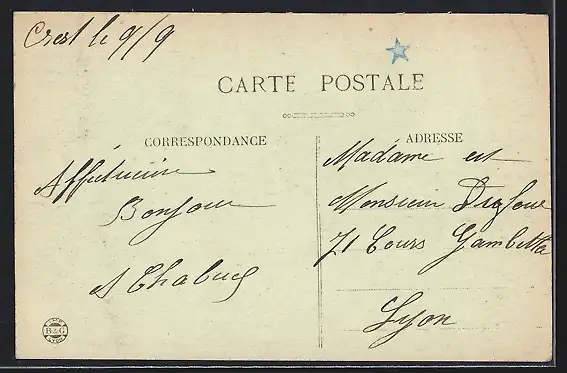 Crest le 9/9
CARTE POSTALE
CORRESPONDANCE
ADRESSE
Affectueux
Bonjour
A Chabu
Madame et
Monsieur
71 Cours Gambetta
Lyon
B&G
LYON